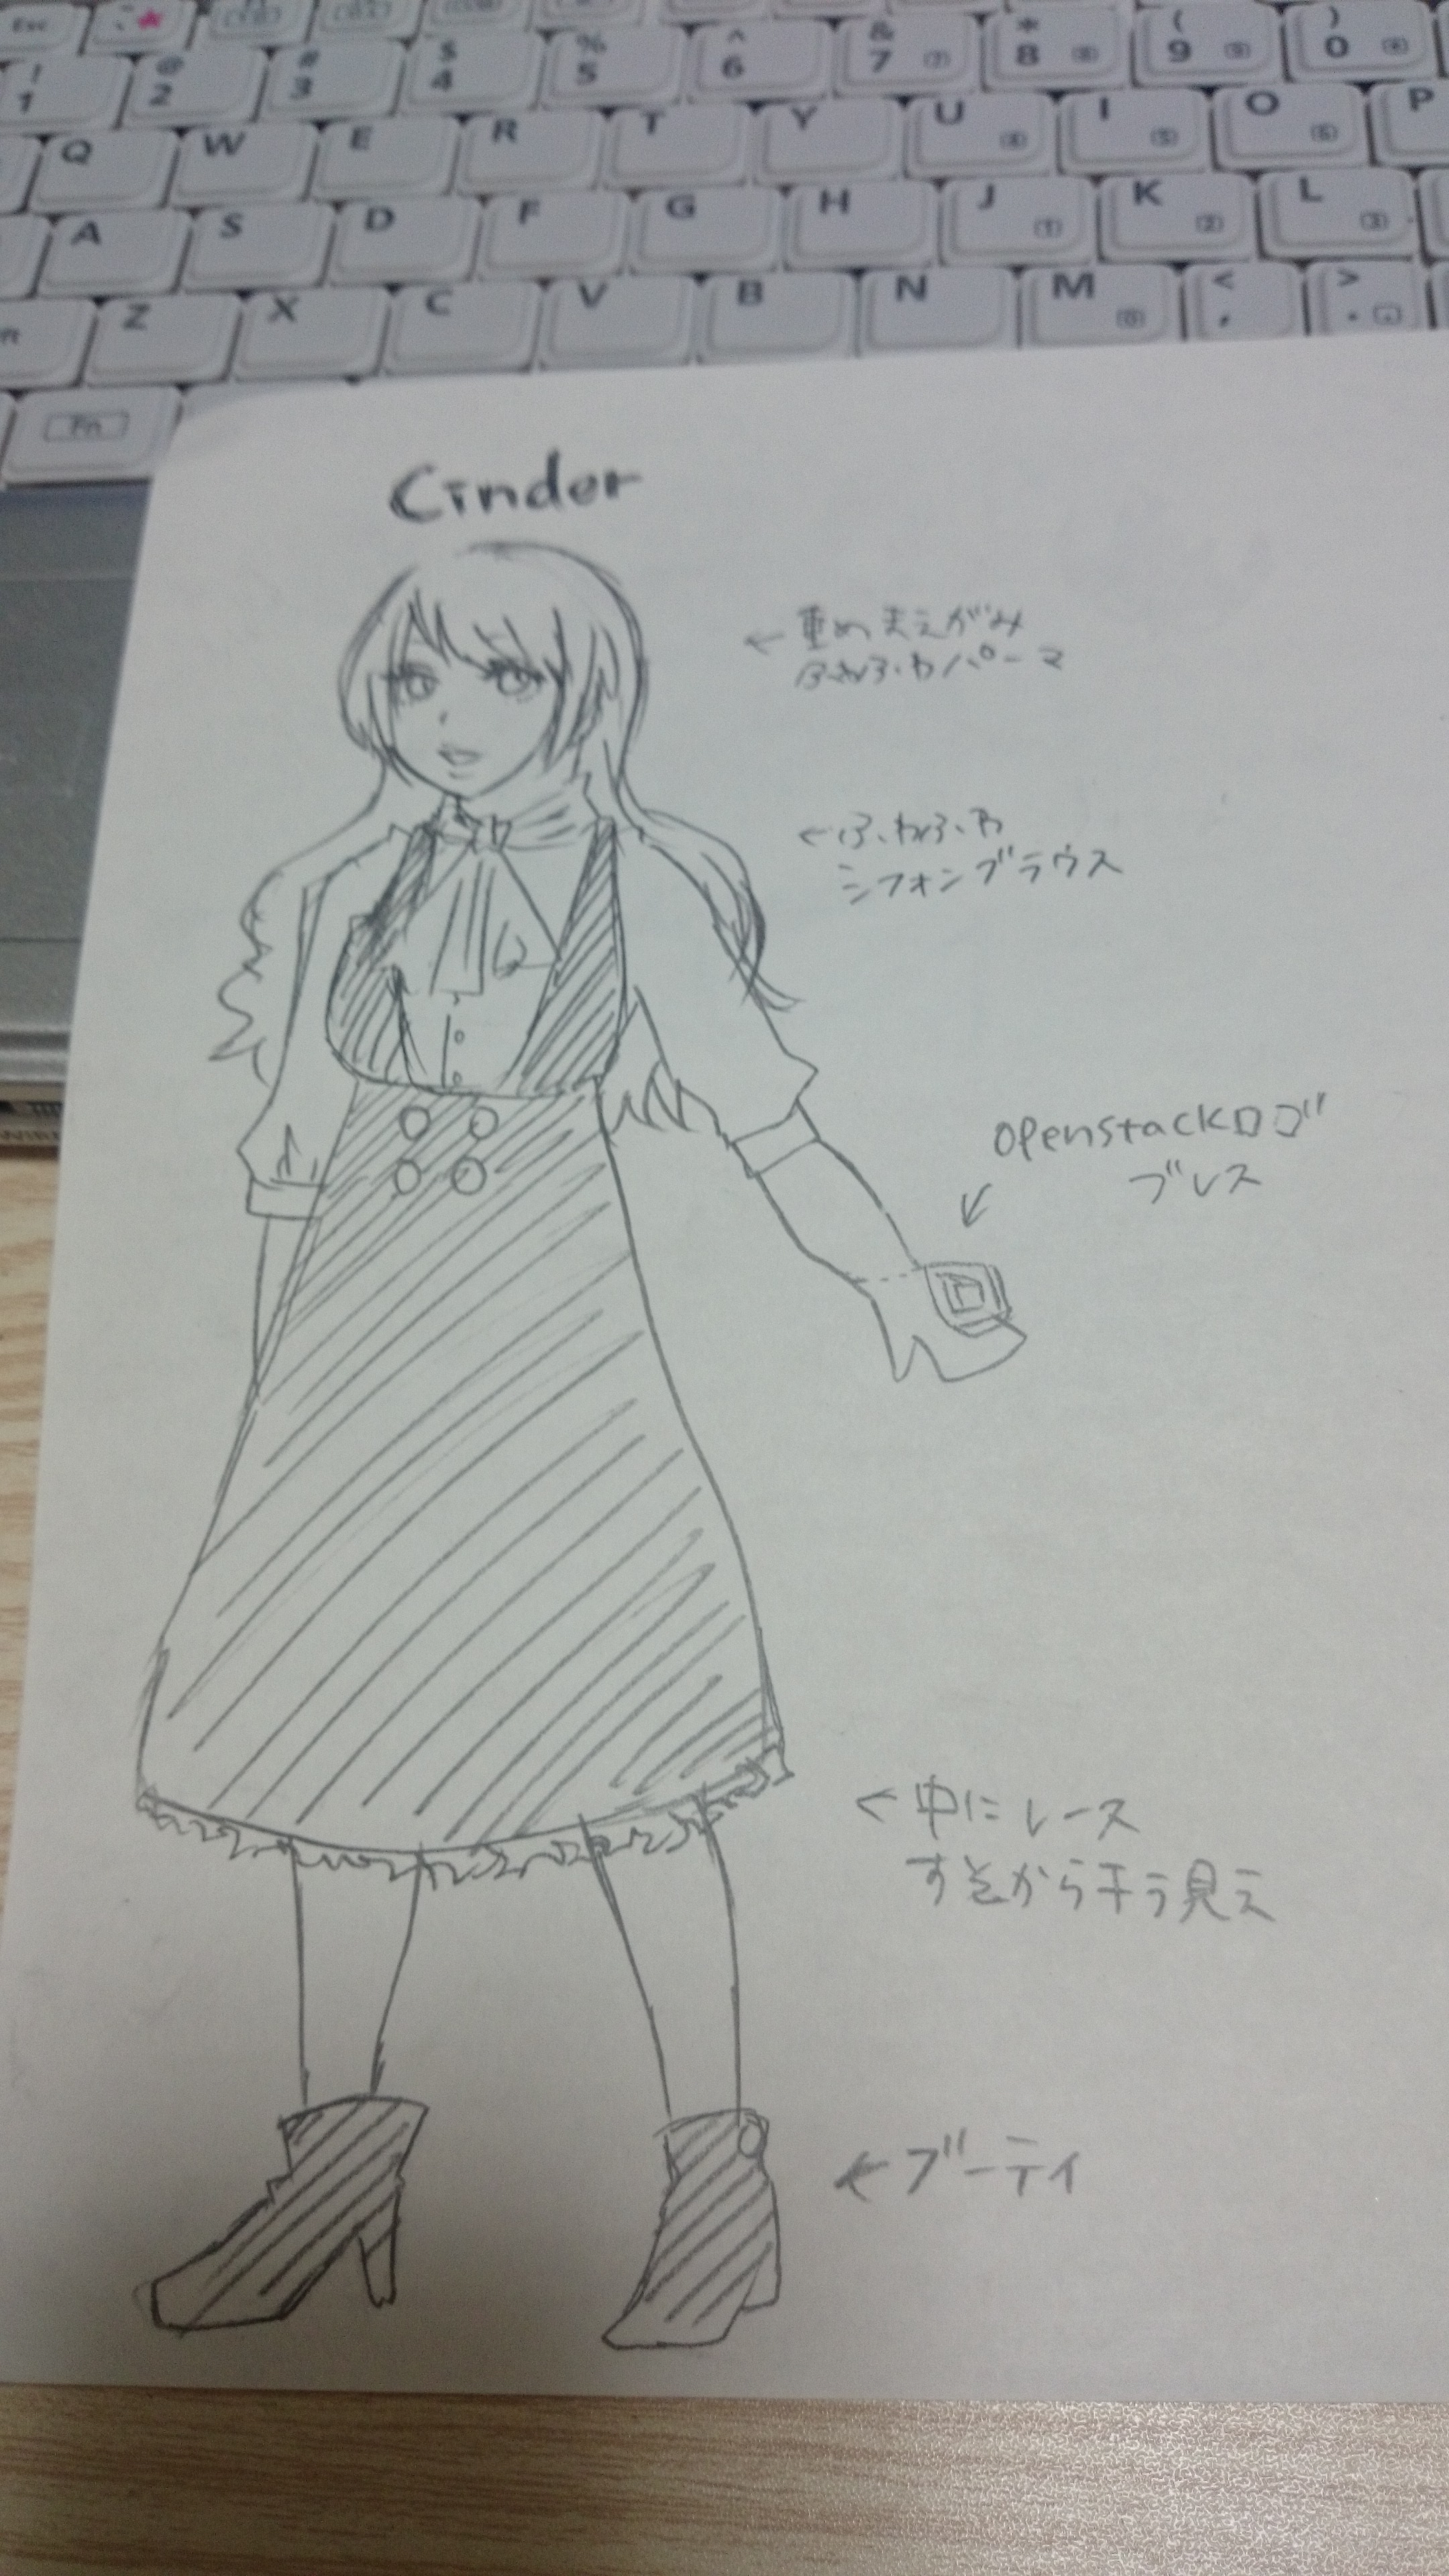 Esc
! 1 @ 2 # 3 $ 4 % 5 ^ 6 & 7 (7) * 8 (8) ( 9 (9) ) 0
Q W E R T Y U (4) I (5) O (6) P
A S D F G H J (1) K (2) L (3)
Z X C V B N M (0) < , > .
Fn
Cinder
←重めまえがみ
ふわふわパーマ
←ふわふわ
シフォンブラウス
openstackロゴ
ブレス
←中にレース
すそからチラ見え
←ブーティ